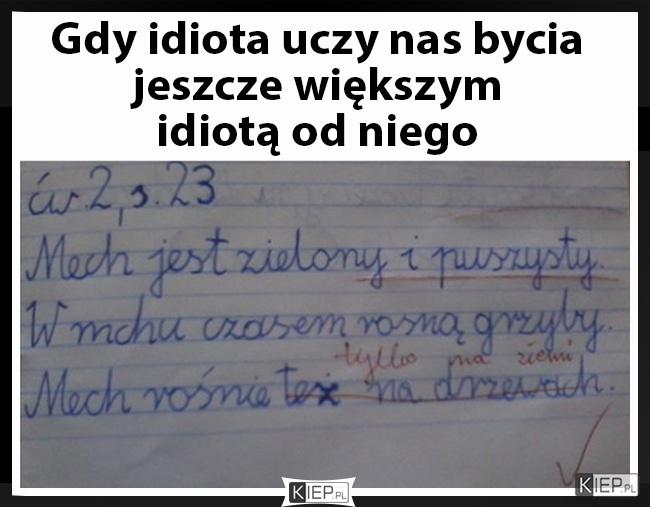 Gdy idiota uczy nas bycia
jeszcze większym
idiotą od niego
ćw. 2, s. 23
Mech jest zielony i puszysty.
W mchu czasem rosną grzyby.
tylko na ziemi
Mech rośnie też na drzewach.
KIEP.PL
KIEP.PL